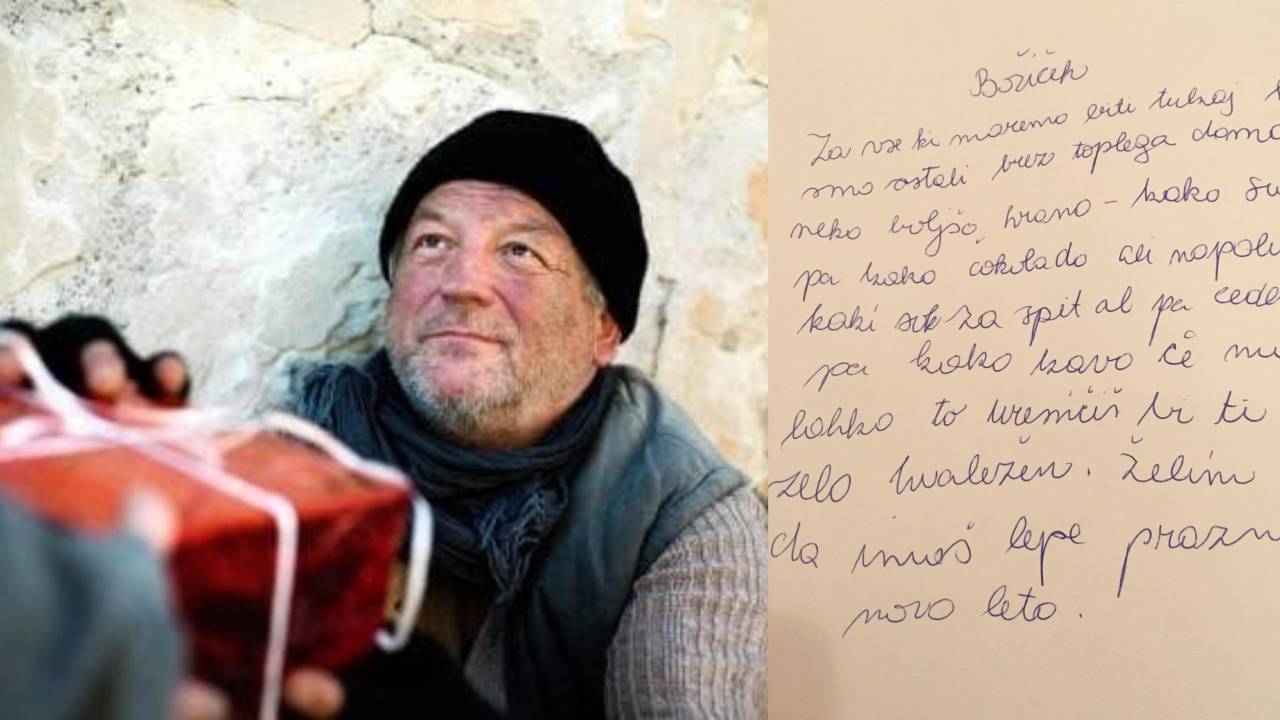 Božiček
Za vse ki moremo biti tukaj
smo ostali brez toplega doma
neko boljšo hrano - kako
pa kako čokolado ali
kaki sok za spit al pa
pa kako kavo če
lahko to uresničiš bi ti
zelo hvaležen. Želim
da imaš lepe
novo leto.